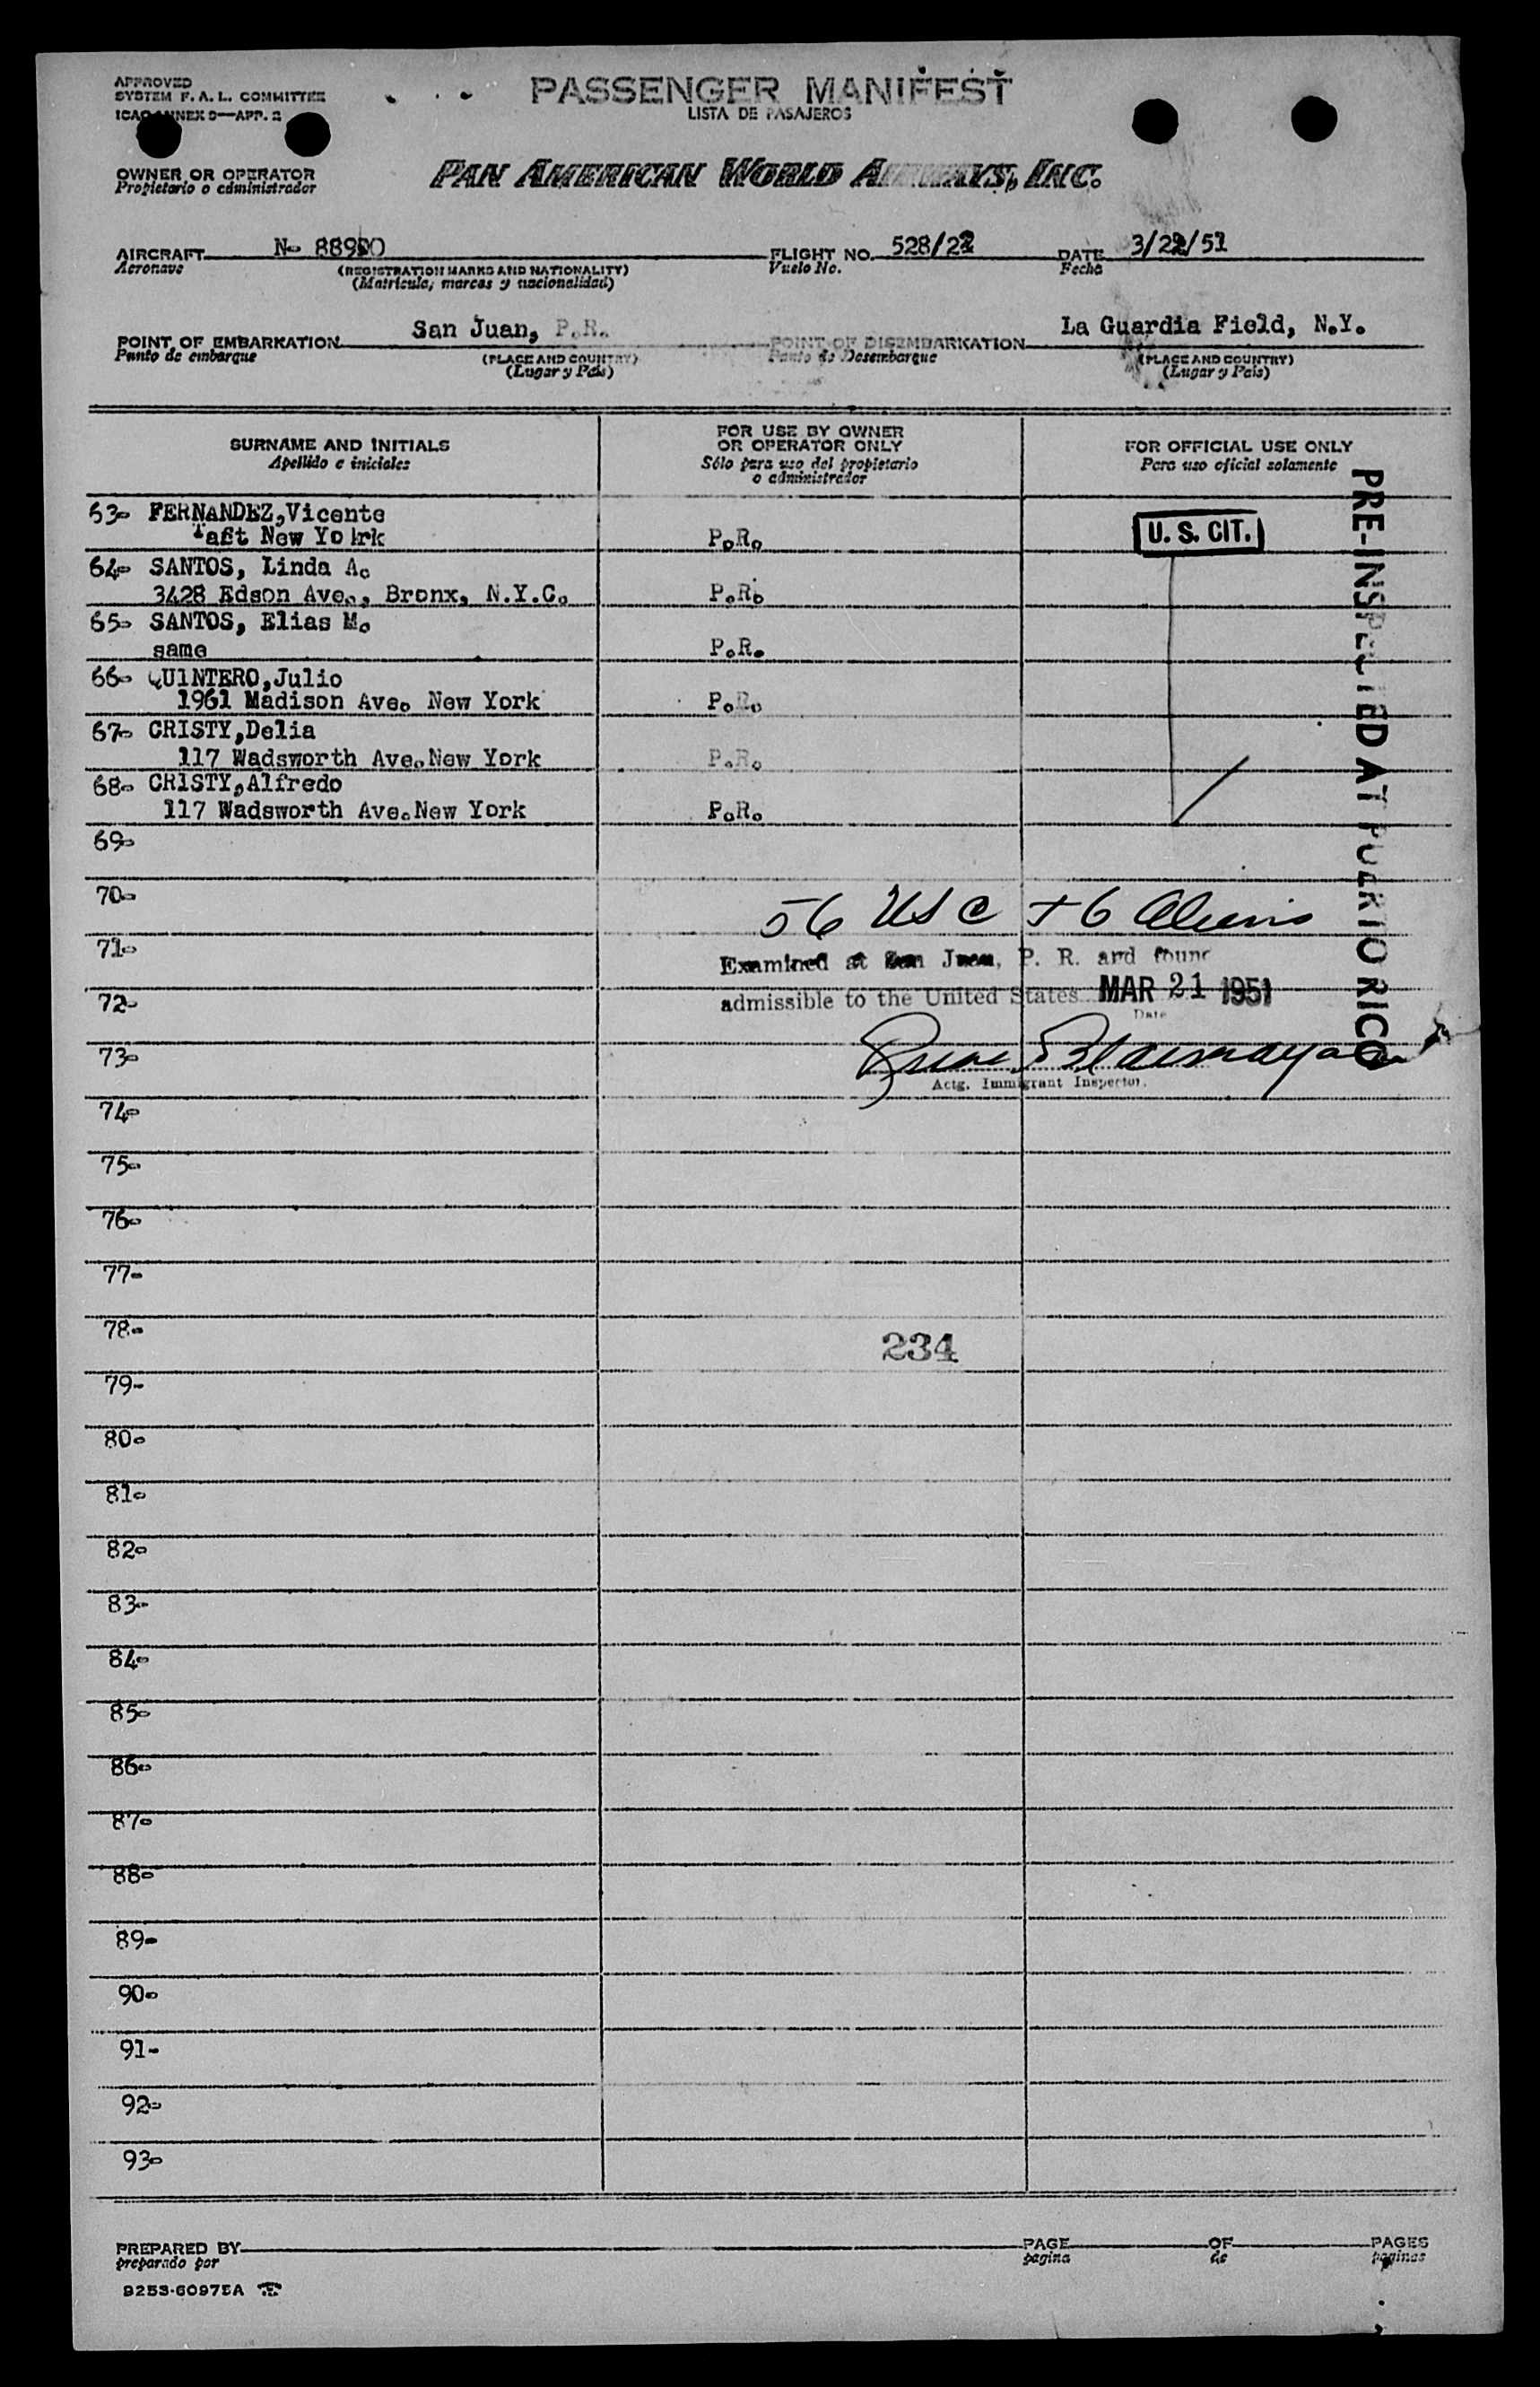 APPROVED
SYSTEM F. A. L. COMMITTEE
ICAO ANNEX 9—APP. 2
PASSENGER MANIFEST
LISTA DE PASAJEROS
OWNER OR OPERATOR
Propietario o administrador
PAN AMERICAN WORLD AIRWAYS, INC.
AIRCRAFT N- 88900
Aeronave
(REGISTRATION MARKS AND NATIONALITY)
(Matricula, marcas y nacionalidad)
FLIGHT NO. 528/22
Vuelo No.
DATE 3/22/51
Fecha
POINT OF EMBARKATION San Juan, P.R.
Punto de embarque
(PLACE AND COUNTRY)
(Lugar y País)
POINT OF DISEMBARKATION La Guardia Field, N.Y.
Punto de Desembarque
(PLACE AND COUNTRY)
(Lugar y País)
SURNAME AND INITIALS
Apellido e iniciales
FOR USE BY OWNER
OR OPERATOR ONLY
Sólo para uso del propietario
o administrador
FOR OFFICIAL USE ONLY
Para uso oficial solamente
63- FERNANDEZ,Vicente
Taft New Yo rk P.R. U. S. CIT.
64- SANTOS, Linda A.
3428 Edson Ave., Bronx, N.Y.C. P.R.
65- SANTOS, Elias M.
same P.R.
66- QUINTERO,Julio
1961 Madison Ave. New York P.R.
67- CRISTY,Delia
117 Wadsworth Ave.New York P.R.
68- CRISTY,Alfredo
117 Wadsworth Ave.New York P.R.
PRE-INSPECTED AT PUERTO RICO
69-
70-
56 USC + 6 Aliens
71-
Examined at San Juan, P. R. and found
72-
admissible to the United States MAR 21 1951
Date
73-
Actg. Immigrant Inspector.
74-
75-
76-
77-
78-
234
79-
80-
81-
82-
83-
84-
85-
86-
87-
88-
89-
90-
91-
92-
93-
PREPARED BY
preparado por
PAGE OF PAGES
pagina de paginas
9253-60975A